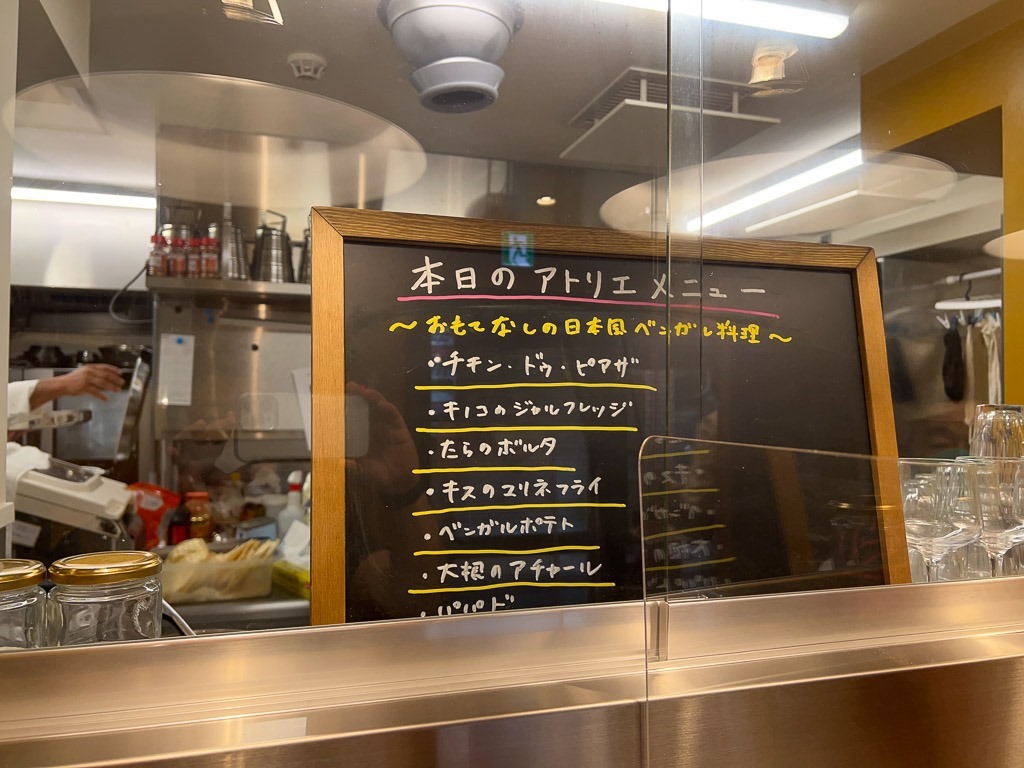 本日のアトリエメニュー
～おもてなしの日本風ベンガル料理～
・チキン・ドゥ・ピアザ
・キノコのジャルフレッジ
・たらのボルタ
・キスのコリネフライ
・ベンガルポテト
・大根のアチャール
・パパド